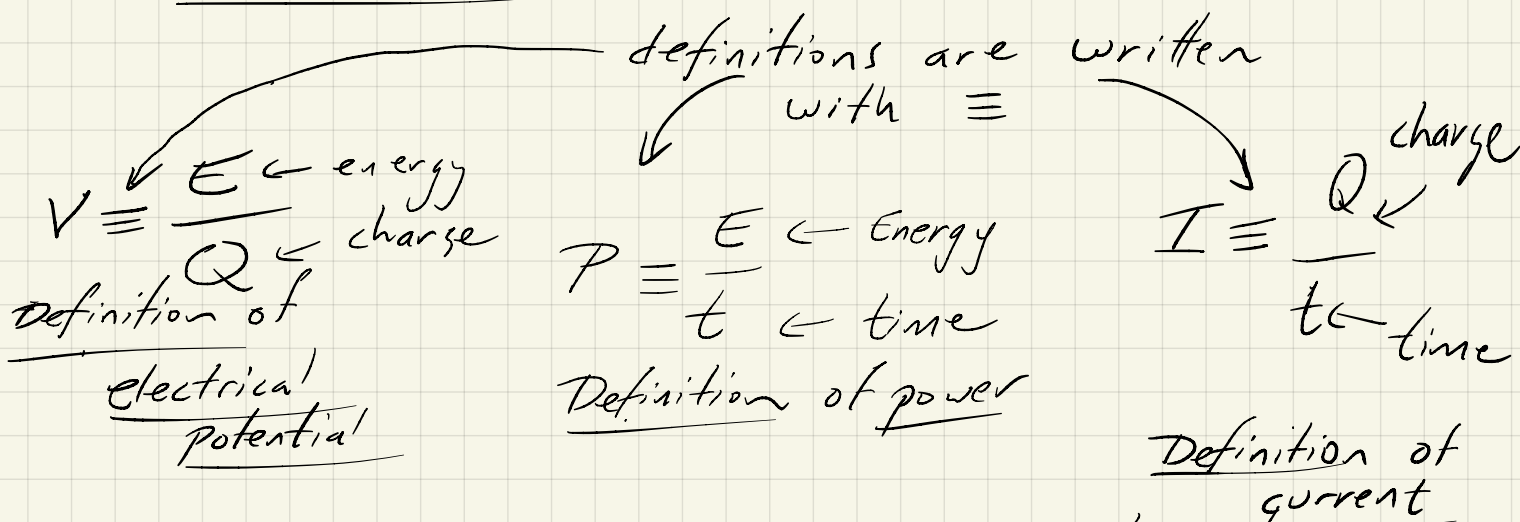 definitions are written
with ≡
V ≡ E/Q
E ← energy
Q ← charge
Definition of
electrical
potential
P ≡ E/t
E ← Energy
t ← time
Definition of power
I ≡ Q/t
charge
t ← time
Definition of
current